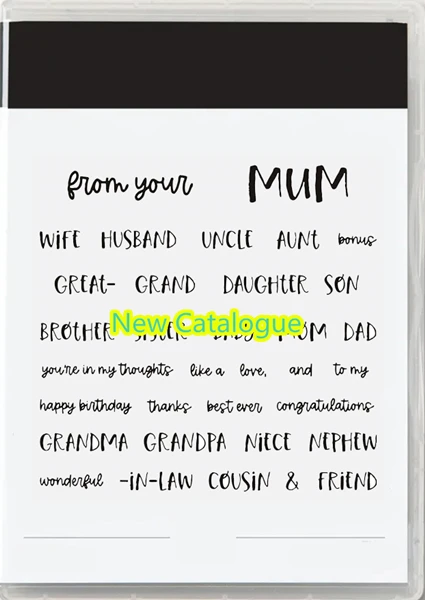 from your MUM
WiFE HUSBAND UNCLE AUNT bonus
GREAT- GRAND DAUGHTER SON
BROTHER SISTER BABY MOM DAD
New Catalogue
you're in my thoughts like a love, and to my
happy birthday thanks best ever congratulations
GRANDMA GRANDPA NiECE NEPHEW
wonderful -iN-LAW COUSiN & FRiEND